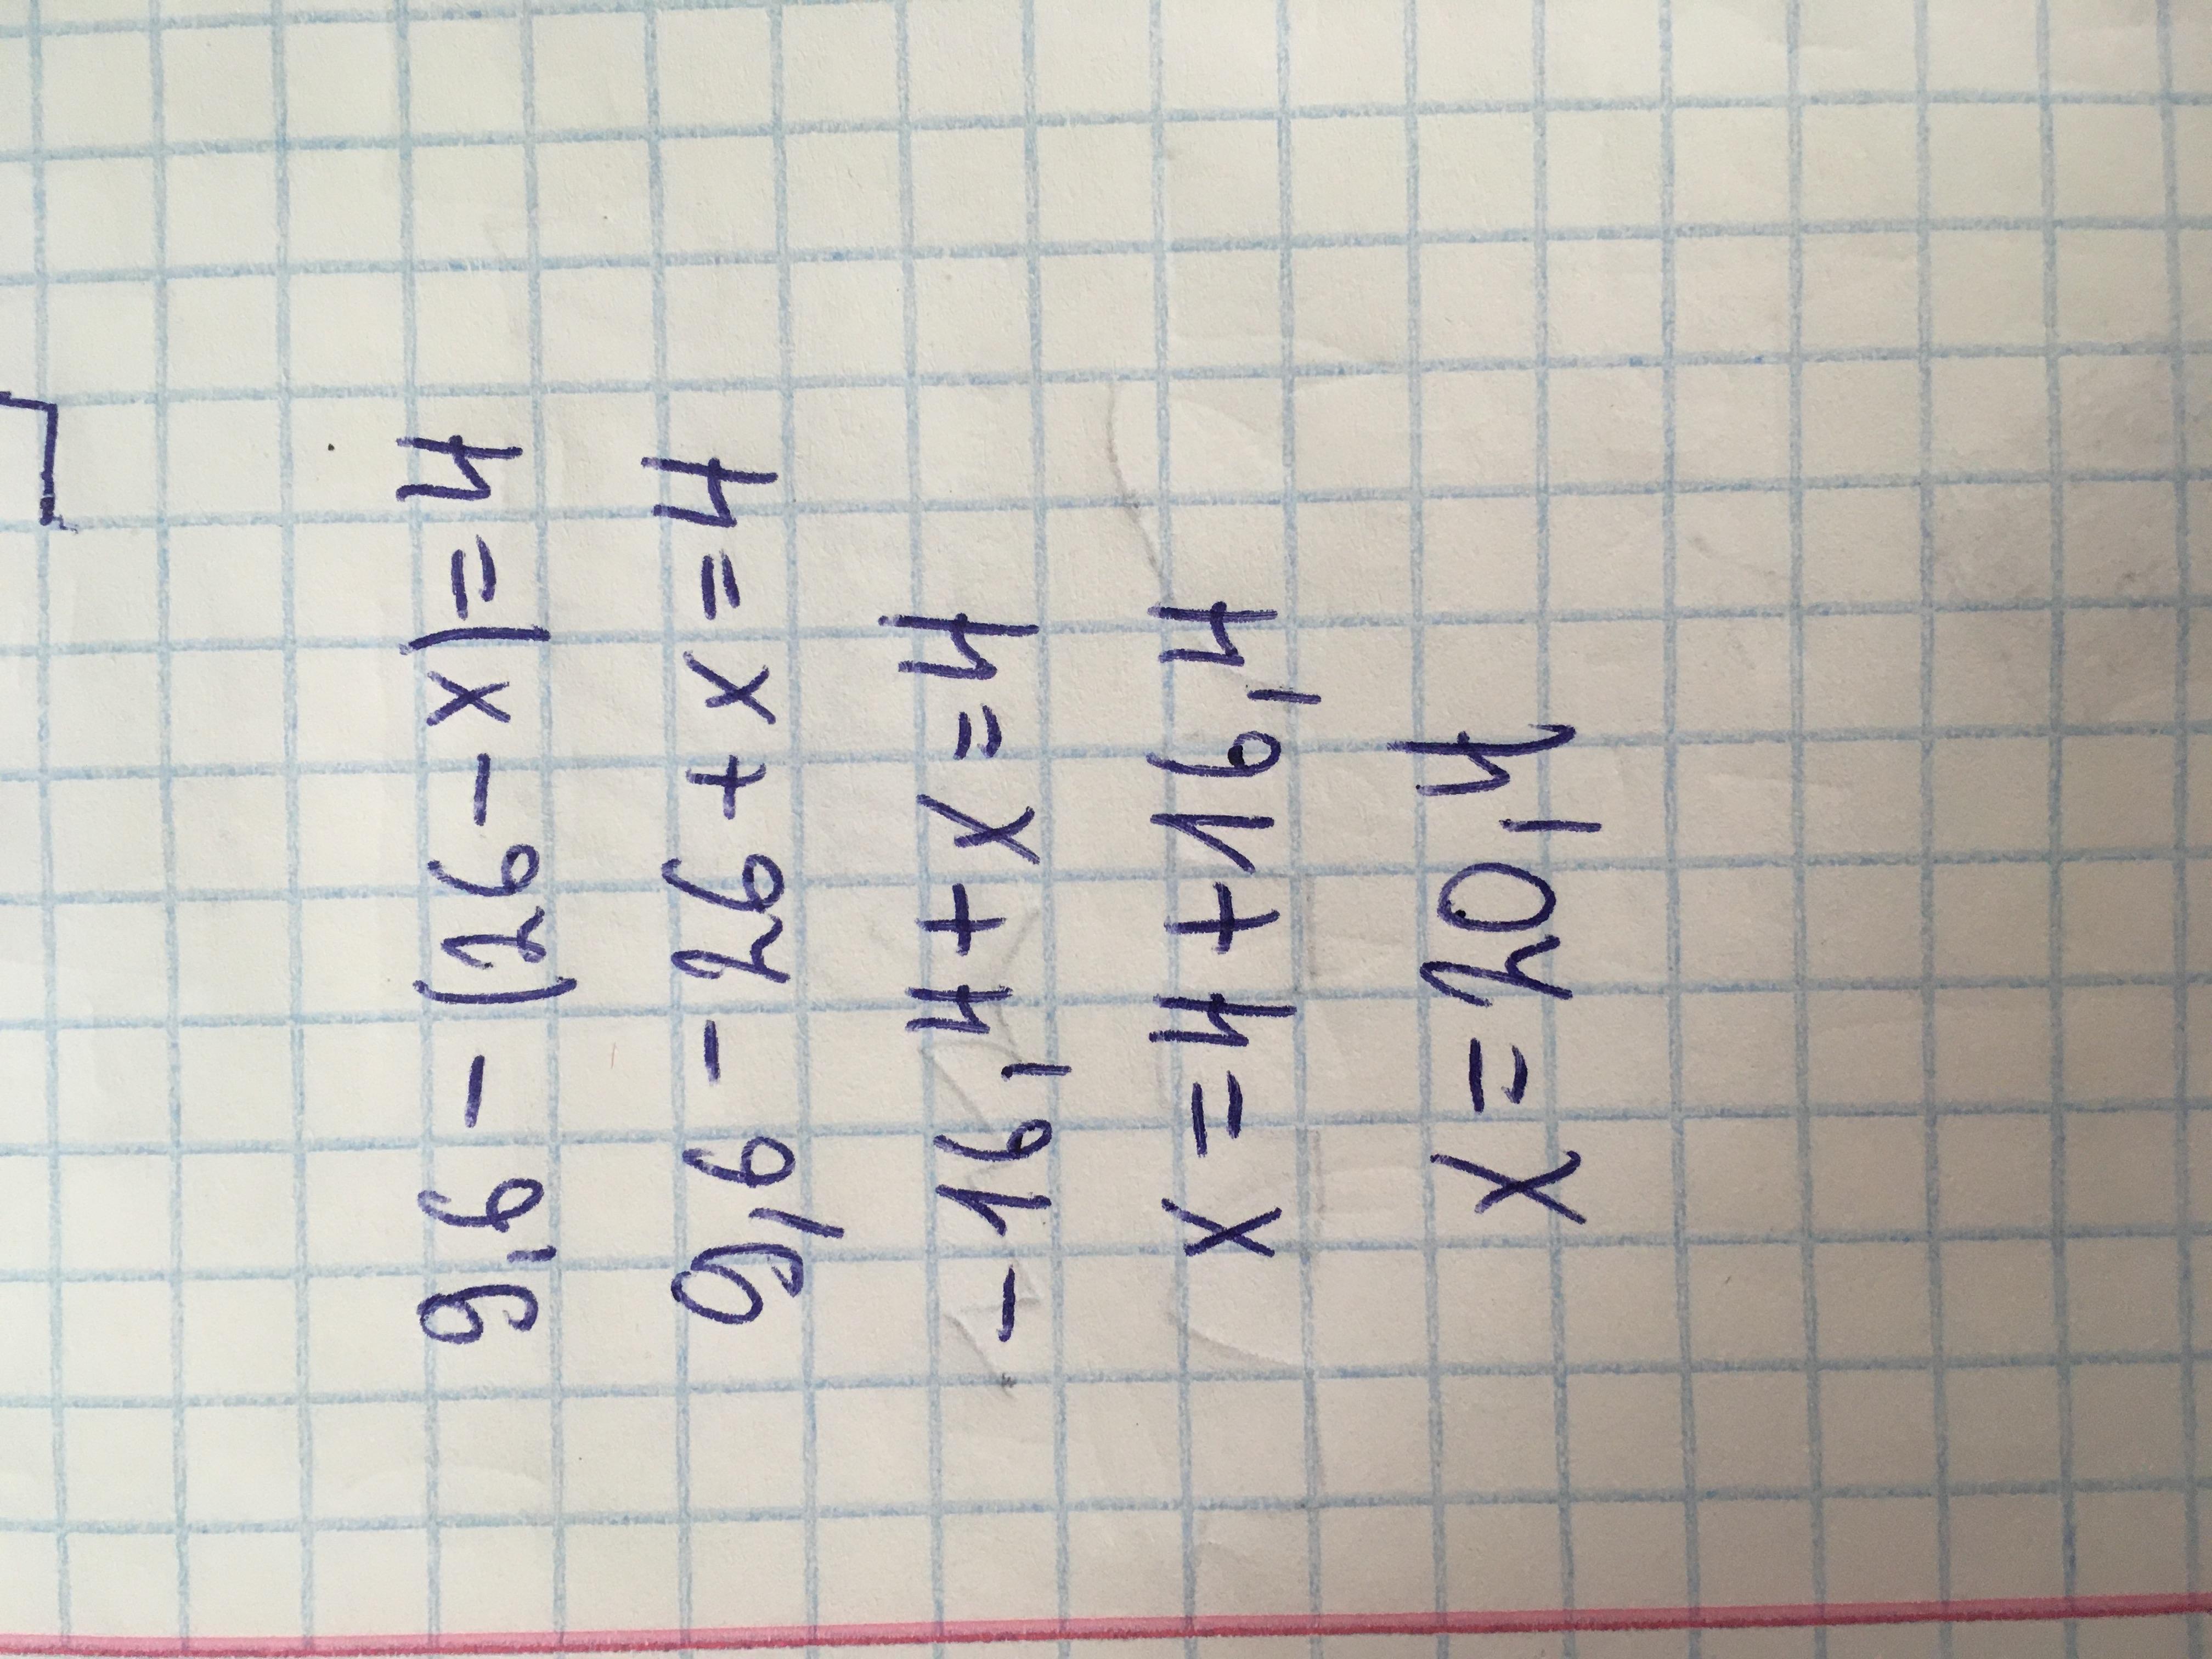 9,6-(26-x)=4
9,6-26+x=4
-16,4+x=4
x=4+16,4
x=20,4